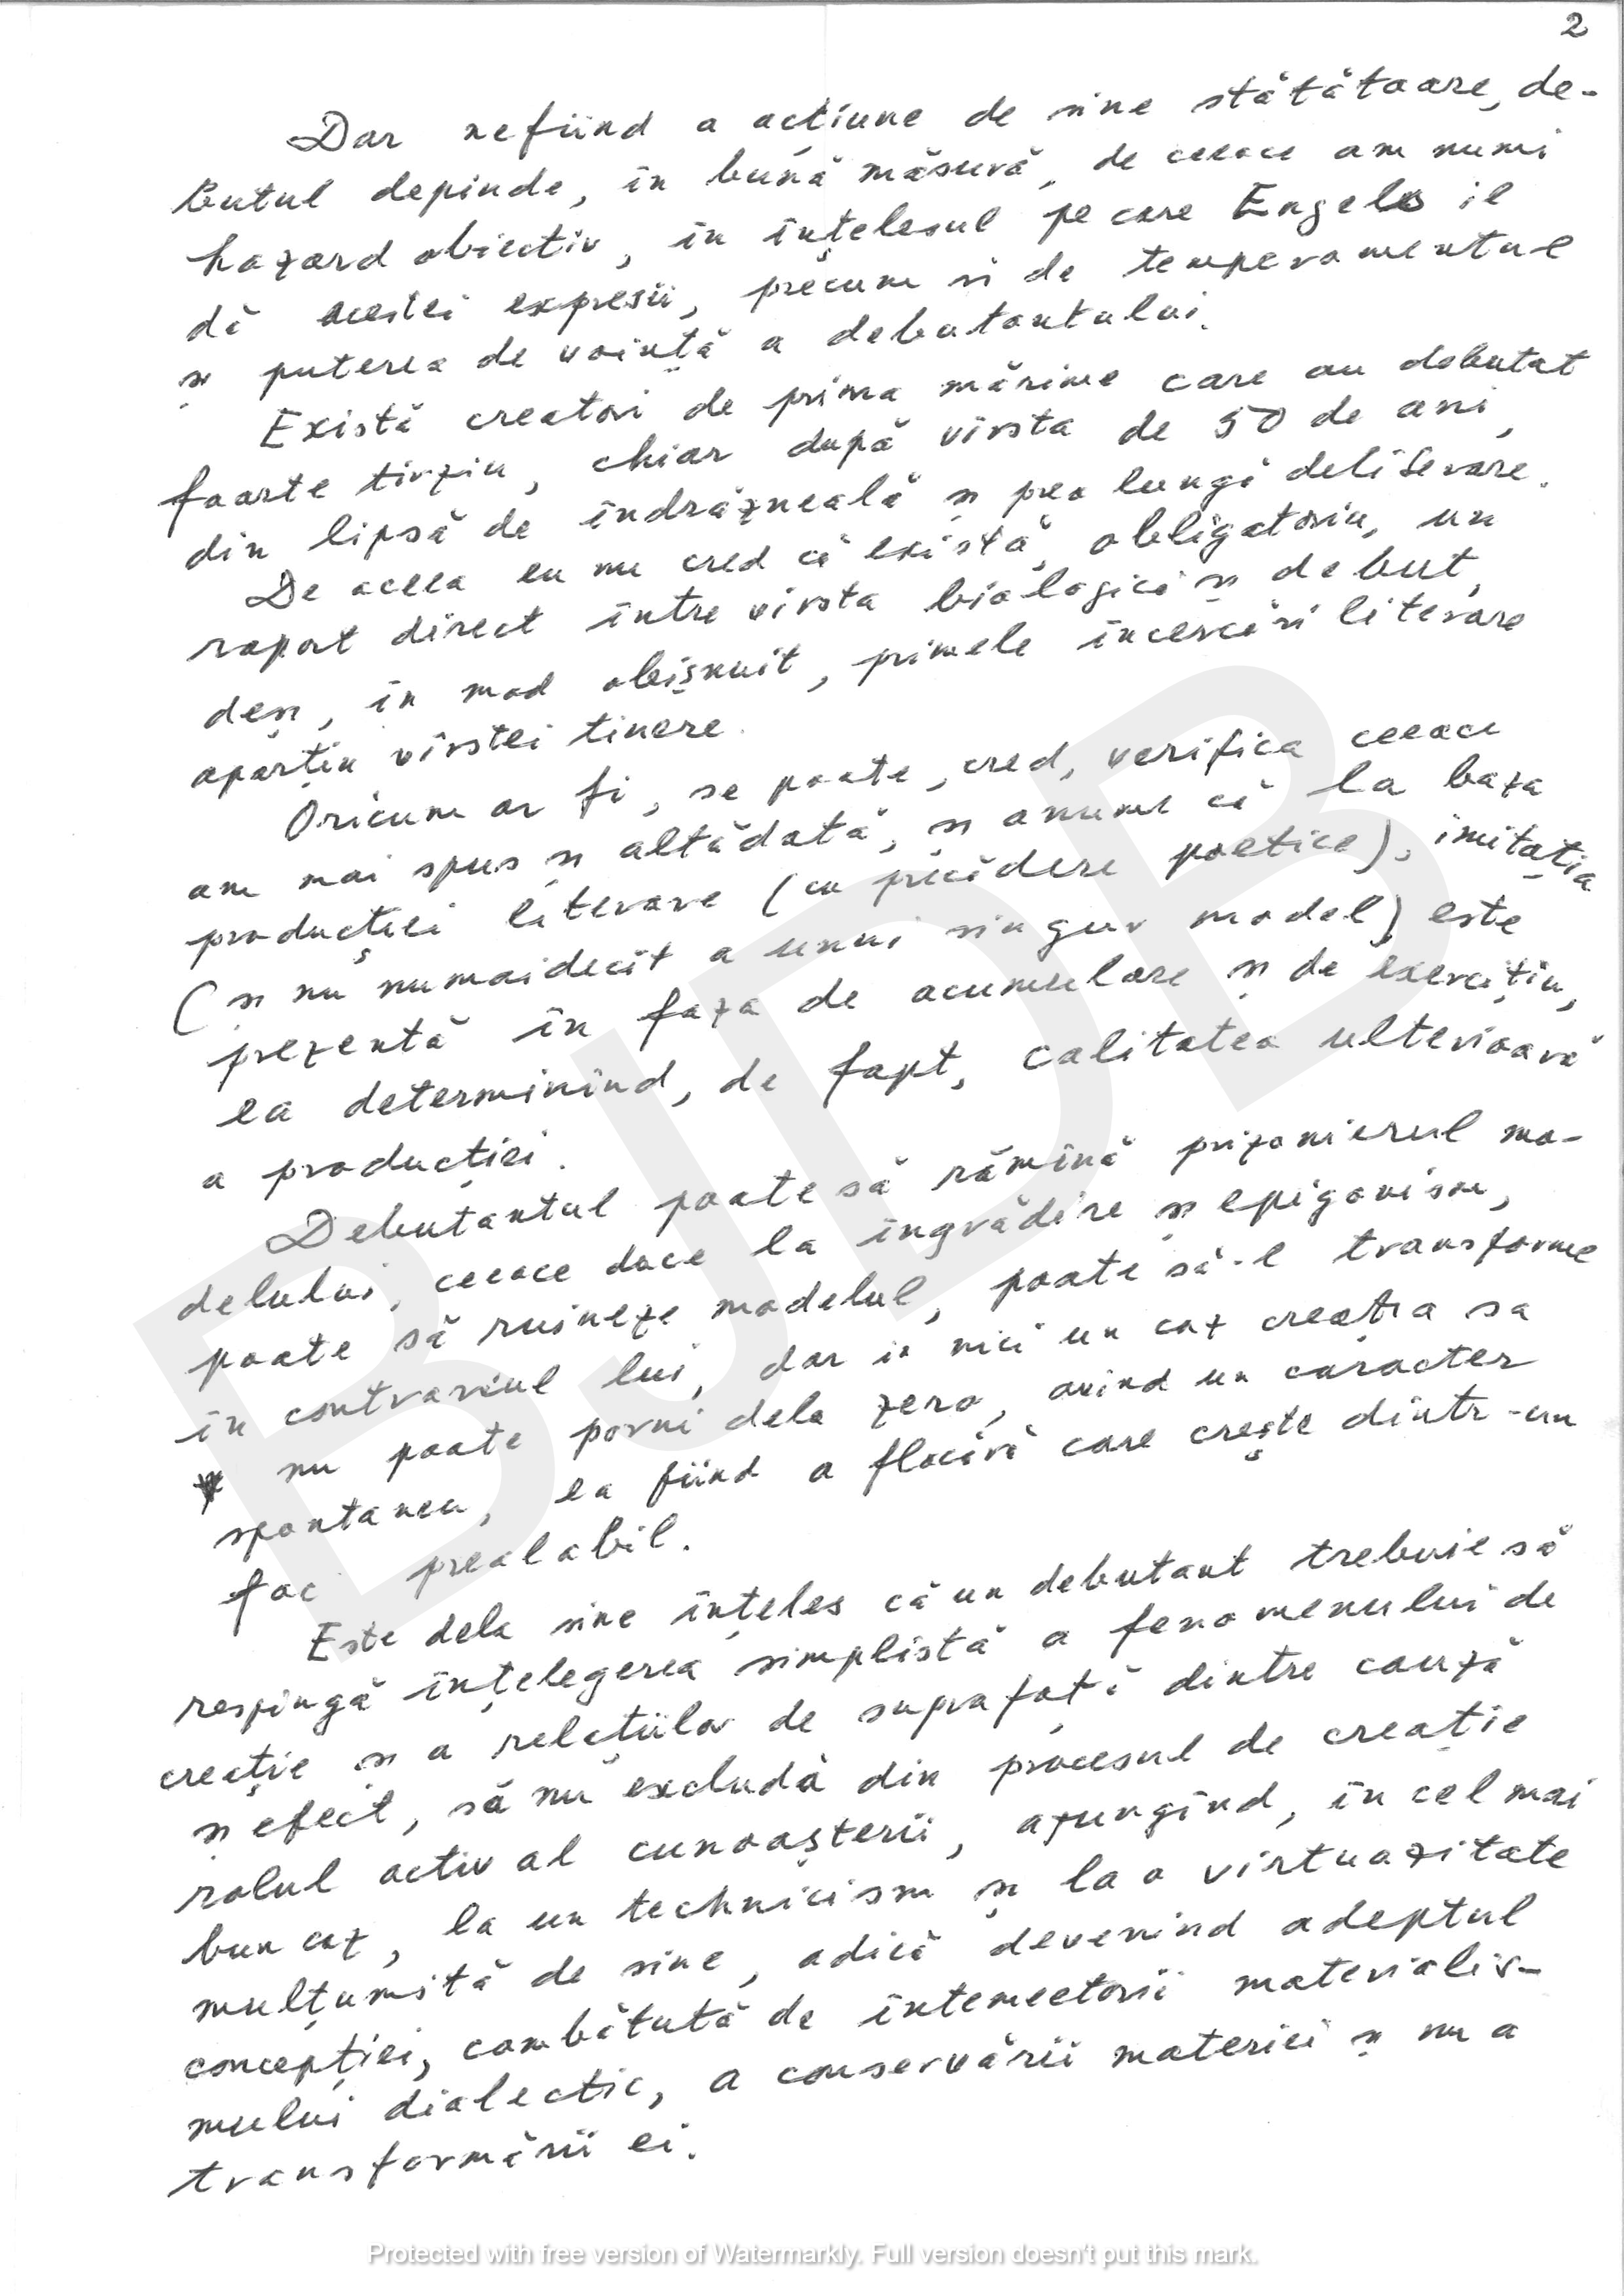 2
Dar nefiind o acțiune de sine stătătoare, de-
butul depinde, în bună măsură, de ceeace am numi
hazard obiectiv, în înțelesul pe care Engels îl
dă acestei expresii, precum și de temperamentul
și puterea de voință a debutantului.
Există creatori de prima mărime care au debutat
foarte tîrziu, chiar după vîrsta de 50 de ani,
din lipsă de îndrăzneală și prea lungă deliberare.
De aceea eu nu cred că există, obligatoriu, un
raport direct între vîrsta biologică și debut,
deși, în mod obișnuit, primele încercări literare
aparțin vîrstei tinere.
Oricum ar fi, se poate, cred, verifica ceeace
am mai spus și altădată, și anume că la baza
producției literare (cu precădere poetice), imitația
(și nu numaidecît a unui singur model) este
prezentă în faza de acumulare și de exercițiu,
ea determinînd, de fapt, calitatea ulterioară
a producției.
Debutantul poate să rămînă prizonierul mo-
delului, ceeace duce la îngrădire și epigonism,
poate să ruineze modelul, poate să-l transforme
în contrariul lui, dar în nici un caz creația sa
nu poate porni dela zero, avînd un caracter
spontaneu, ea fiind o flacără care crește dintr-un
foc prealabil.
Este dela sine înțeles că un debutant trebuie să
respingă înțelegerea simplistă a fenomenului de
creație și a relațiilor de suprafață dintre cauză
și efect, să nu excludă din procesul de creație
rolul activ al cunoașterii, ajungînd, în cel mai
bun caz, la un technicism și la o virtuozitate
mulțumită de sine, adică devenind adeptul
concepției, combătută de întemeetorii materialis-
mului dialectic, a conservării materiei și nu a
transformării ei.
BJDB
Protected with free version of Watermarkly. Full version doesn't put this mark.